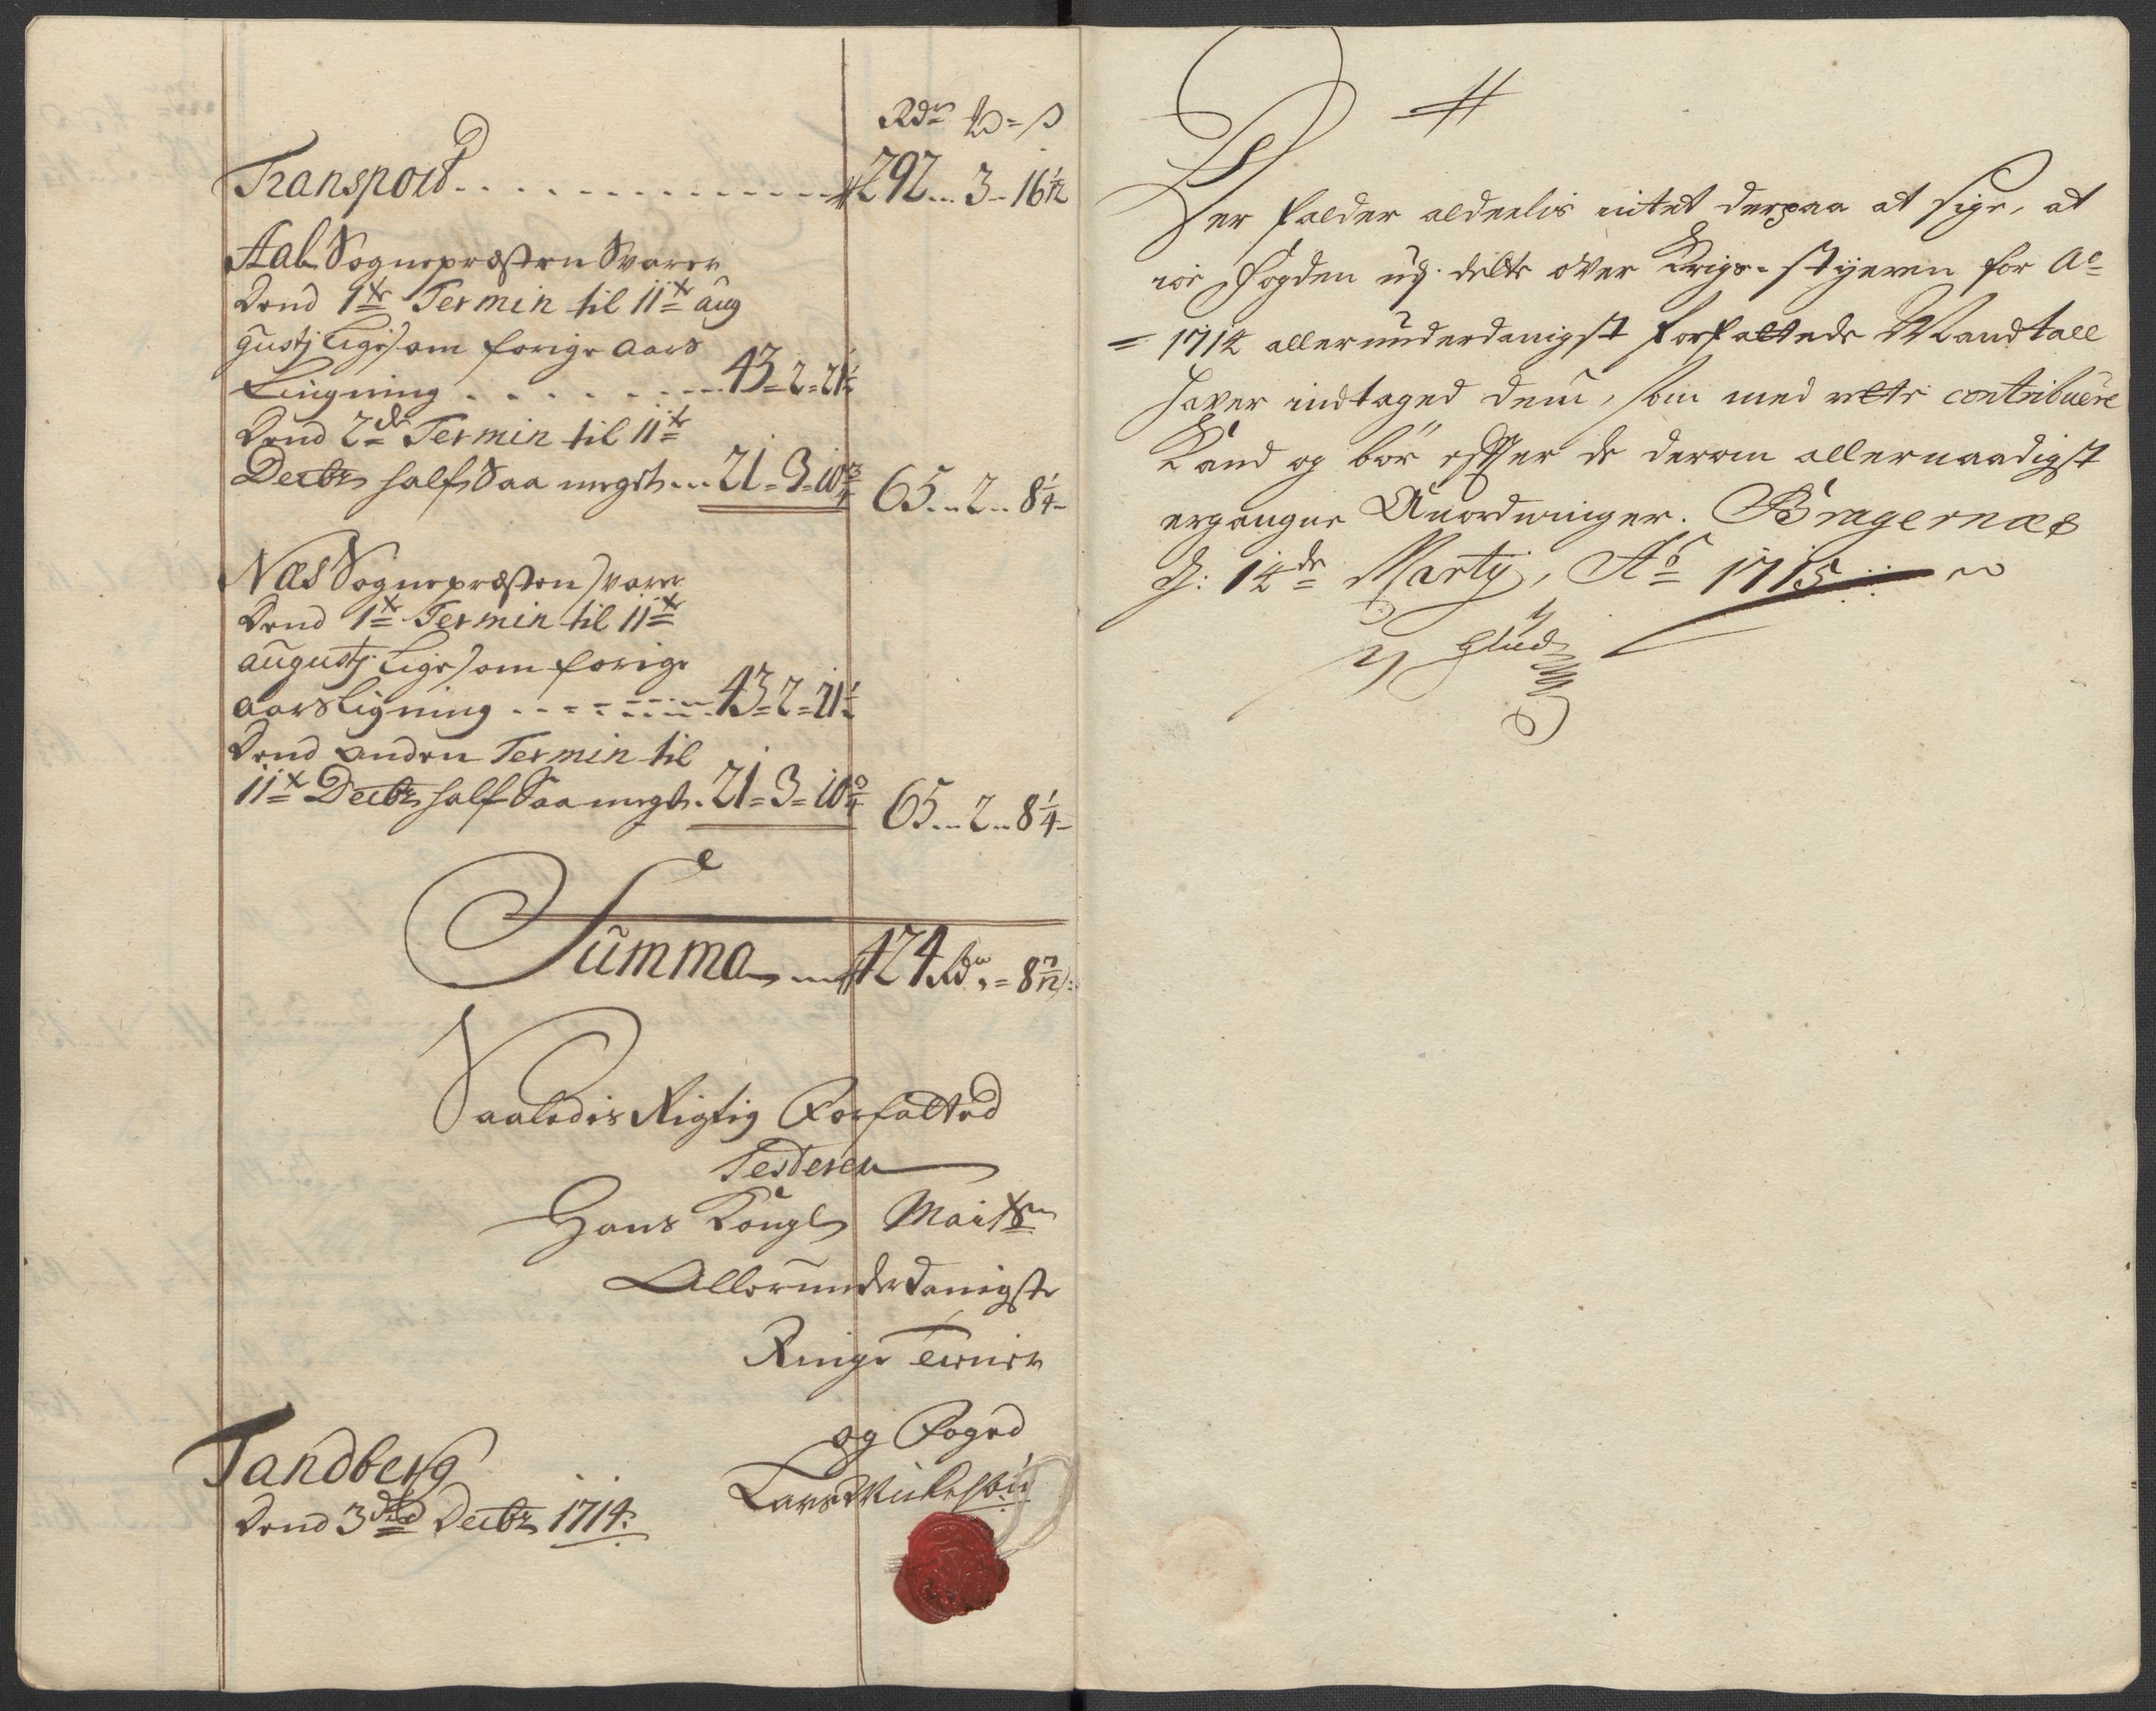 Rdr ₰ = ß
Transport . . . . . . . . 292 .. 3 - 16 1/12
Aal Sognepræsten Svarer
Dend 1te Termin til 11te aug
gustj ligesom forige aars
Ligning . . . . . . 43 = 2 = 21 1/2
Dend 2de Termin til 11te
Decbr half Saa meget ... 21 = 3 = 10 3/4 65 .. 2 .. 8 1/4
Næs Sognepræsten Svarer
Dend 1te Termin til 11te
augustj ligesom forige
aars Ligning . . . . . 43 = 2 = 21 1/2
Dend anden Termin til
11te Decbr half Saa meget . 21 = 3 = 10 3/4 65 .. 2 .. 8 1/4
Summa 424 Rdr = 8 7/12
Saaledis Rigtig Forfatted
Testerer
Hans Kongl Maits
Allerunderdanigste
Ringe Teener
og Foged
Tandberg
Dend 3die Decbr 1714.
#
Her falder aldeelis intet derpaa at sige, at
jo Fogden udj dette over Krigs-Styeren for Ao
= 1714 allerunderdanigst forfattede Mandtall
haver indtaged dem, som med rette contribuere
Kand og bör efter de derom allernaadigst
ergangne Anordninger. Bragernæs
d: 14de Martij, Ao 1715
Glud